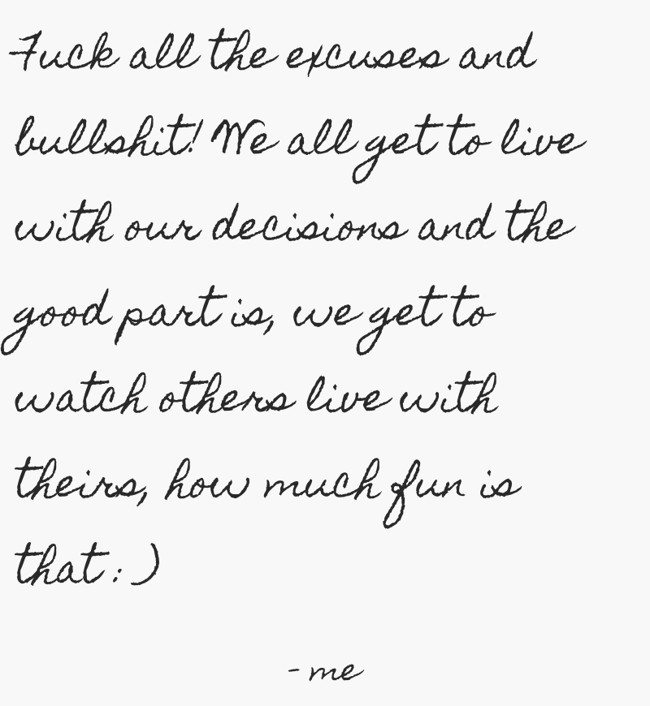 Fuck all the excuses and
bullshit! We all get to live
with our decisions and the
good part is, we get to
watch others live with
theirs, how much fun is
that : )
- me